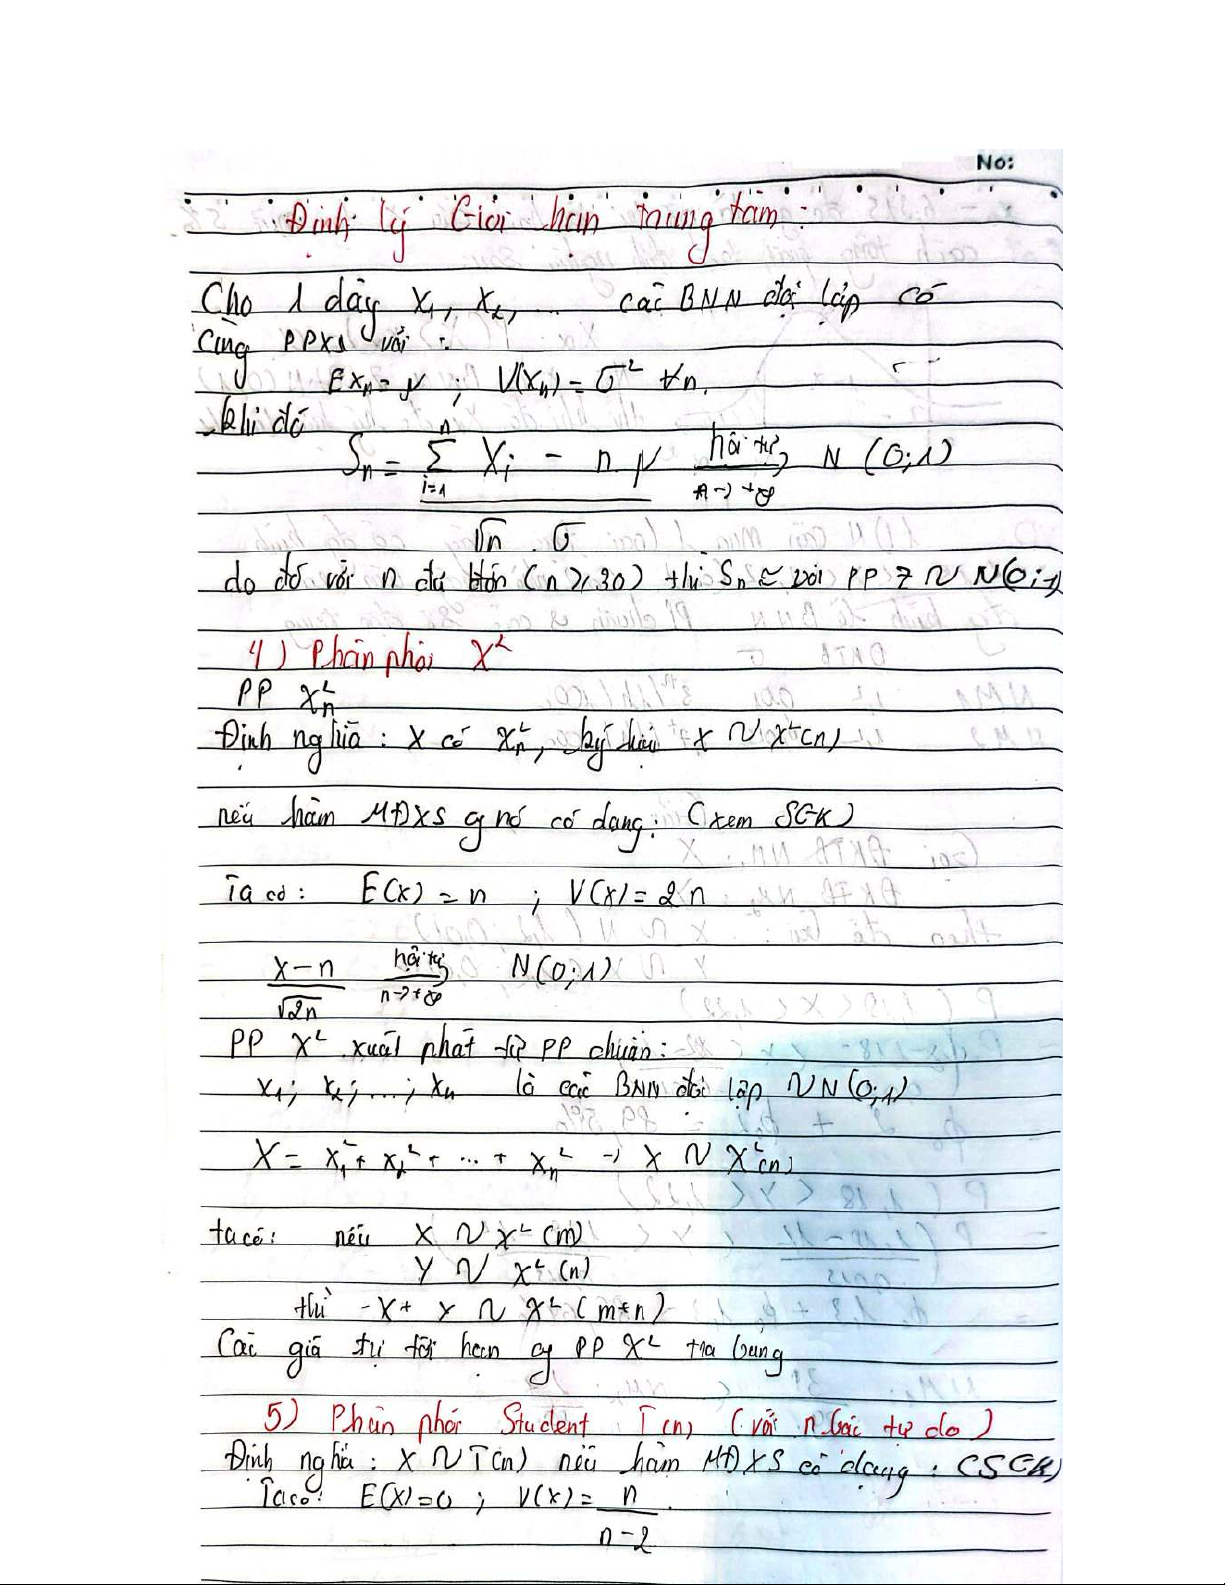 No:
Định lý Giới hạn trung tâm:
Cho 1 dãy X₁, X₂, ... các BNN độc lập có
cùng PPXS với:
EXₙ = μ ; V(Xₙ) = σ² ∀n.
khi đó
Sₙ = (∑ᵢ₌₁ⁿ Xᵢ - n.μ) / (√n . σ) hội tụ n→+∞ N(0;1)
do đó với n đủ lớn (n ≥ 30) thì Sₙ ≈ với PP Z ~ N(0;1)
4) Phân phối χ²
PP χ²ₙ
Định nghĩa: X có χ²ₙ, ký hiệu X ~ χ²(n)
nếu hàm MĐXS of nó có dạng: (xem SGK)
Ta có: E(X) = n ; V(X) = 2n
(X-n)/√2n hội tụ n→+∞ N(0;1)
PP χ² xuất phát từ PP chuẩn:
X₁; X₂; ...; Xₙ là các BNN độc lập ~ N(0;1)
X = X₁² + X₂² + ... + Xₙ² → X ~ χ²(n)
ta có: nếu X ~ χ²(m)
Y ~ χ²(n)
thì X + Y ~ χ²(m+n)
Các giá trị tới hạn of PP χ² tra bảng
5) Phân phối Student T(n) (với n bậc tự do)
Định nghĩa: X ~ T(n) nếu hàm MĐXS có dạng: (SGK)
Ta có: E(X) = 0 ; V(X) = n/(n-2)